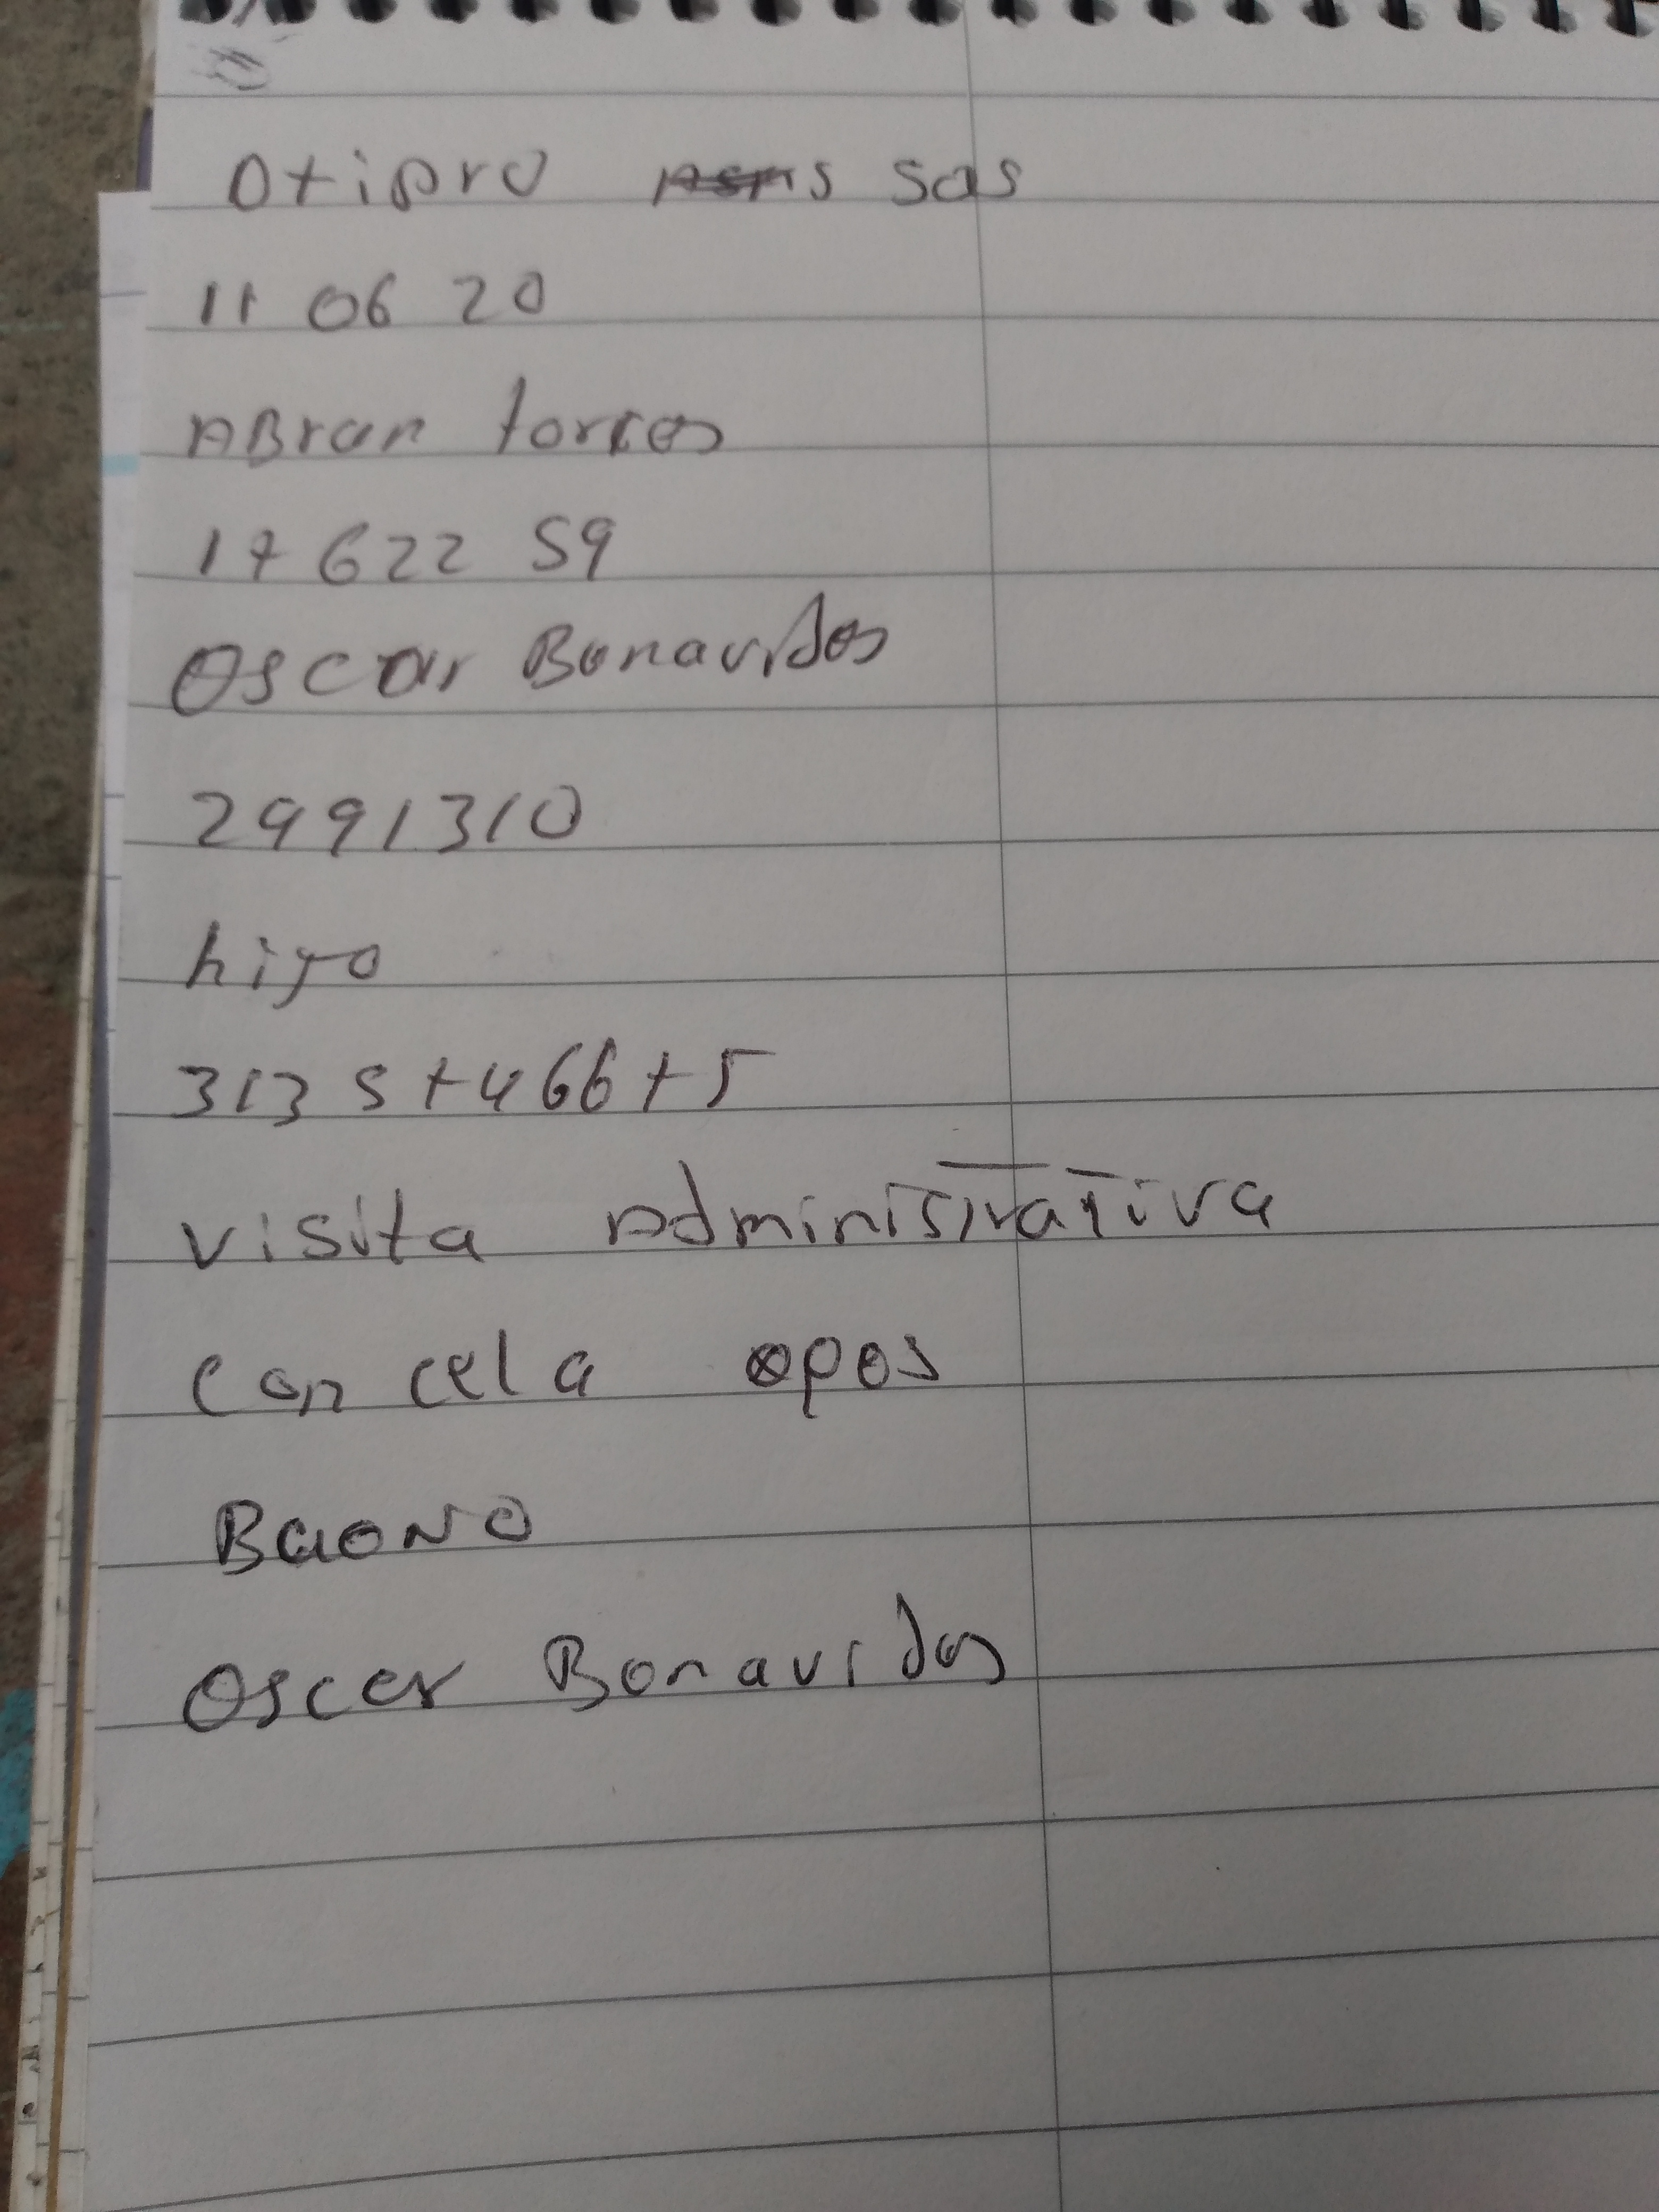 Otipro sas
11 06 20
ABran torres
17 622 59
Oscar Bonavides
2991310
hiyo
313 5746675
visita Administrativa
Cancela opos
BuoNo
Oscer Bonavidos